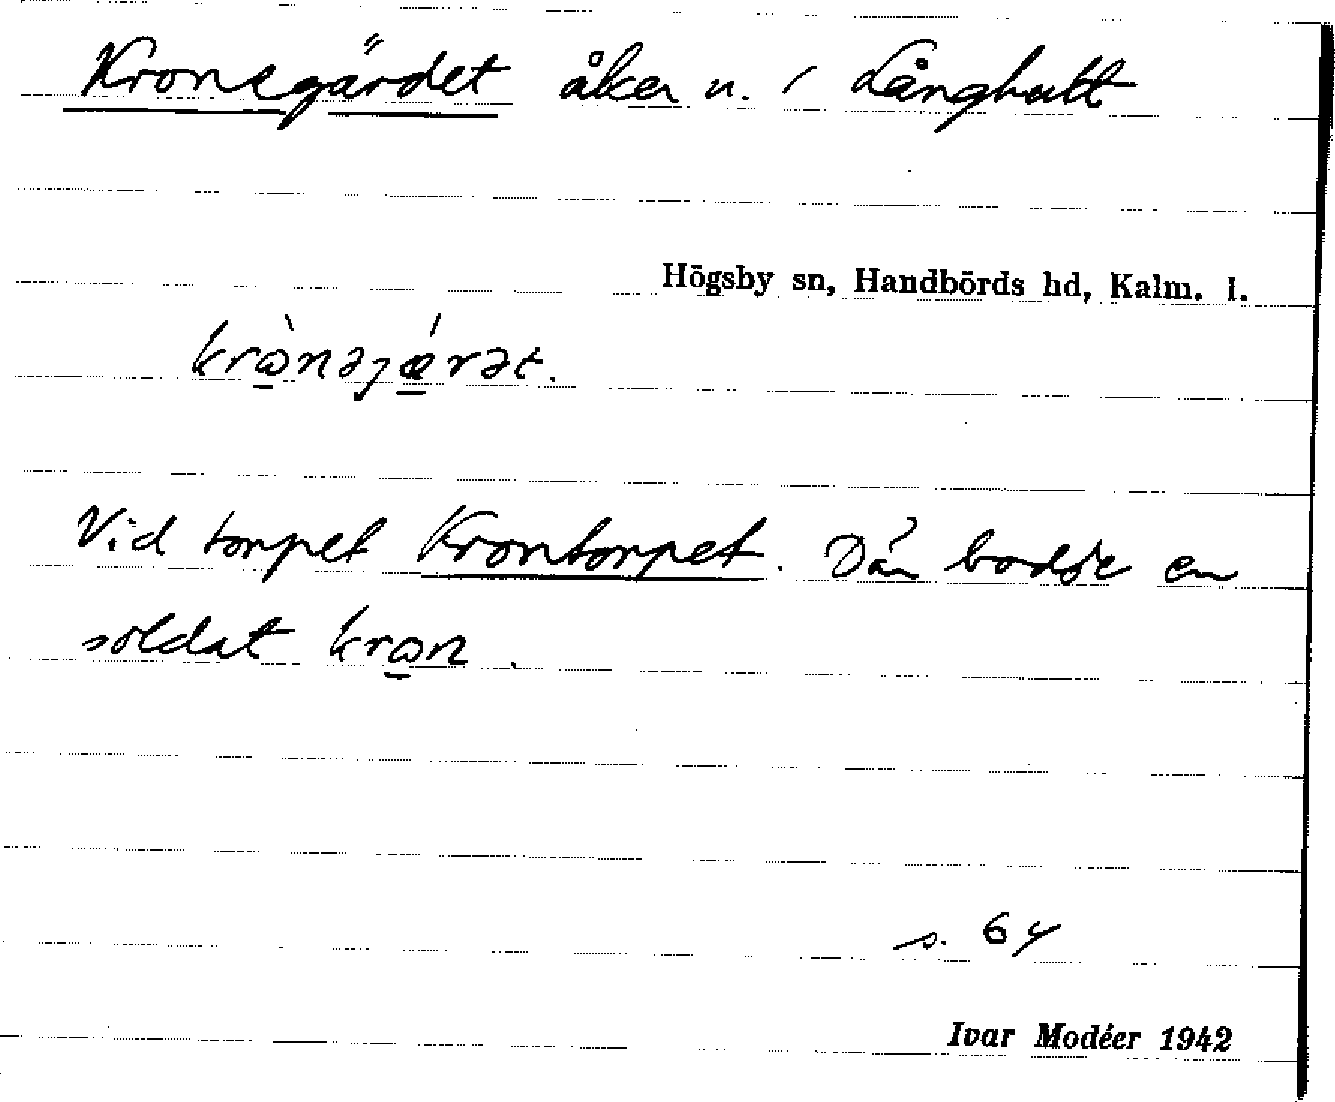 Kronegärdet åker u. / Långhult
Högsby sn, Handbörds hd, Kalm. l.
krὼ̲nəjǽ̲rət.
Vid torpet Krontorpet. Där bodde en
soldat krω̲n.
s. 64
Ivar Modéer 1942